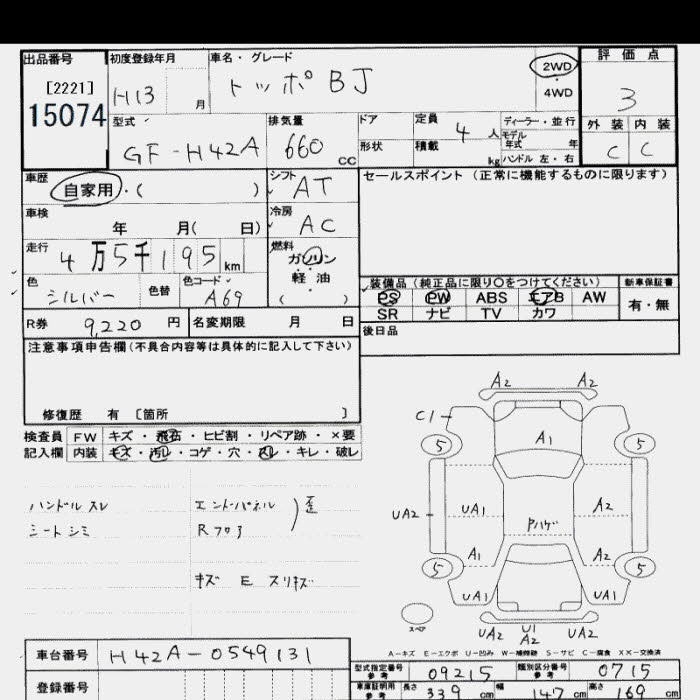 出品番号 初度登録年月 車名・グレード 評価点
[2221] H13 月 トッポBJ 2WD・4WD 3
15074
型式 排気量 ドア 定員 4人 ディーラー・並行 外装 内装
GF-H42A 660 CC 形状 積載 kg モデル年式 年 C C
ハンドル 左・右
車歴 自家用・( ) シフト AT セールスポイント(正常に機能するものに限ります)
車検 年 月( 日) 冷房 AC
走行 4万5千195km 燃料 ガソリン・軽油( )
色 シルバー 色替 色コード A69 装備品(純正品に限り○をつけてください) 新車保証書
PS PW ABS エアB AW 有・無
SR ナビ TV カワ
R券 9,220円 名変期限 月 日 後日品
注意事項申告欄(不具合内容等は具体的に記入して下さい)
修復歴 有 〔箇所 〕
検査員 FW キズ・飛石・ヒビ割・リペア跡・×要
記入欄 内装 キズ・汚レ・コゲ・穴・スレ・キレ・破レ
ハンドル スレ エンドパネル 歪
シート シミ Rフロア
キズ E スリキズ
A2 A2
C1
5 A1 5
UA2 UA1 A2
Pハゲ
A1 A2
5 5
UA1 UA1
スペア UA2 U1 UA2
A2
A-キズ E-エクボ U-凹ミ W-補修跡 S-サビ C-腐食 XX-交換済
車台番号 H42A-0549131
型式指定番号 参考 09215 類別区分番号 参考 0715
登録番号 車庫証明用 参考 長さ 339 幅 147 高さ 169